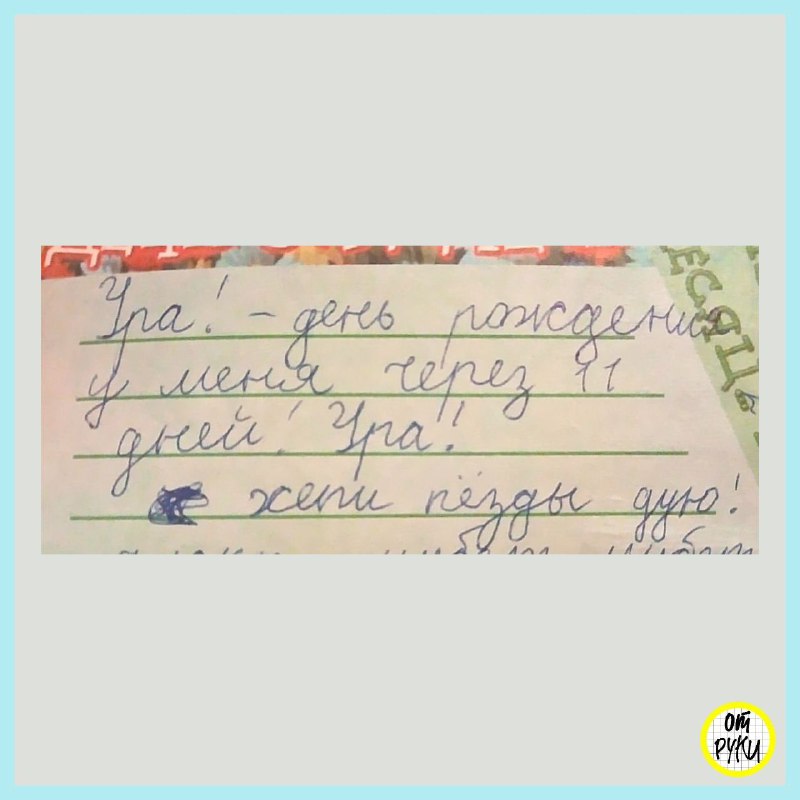 Ура! – день рождения
у меня через 11
дней! Ура!!
хепи пёзды дую!
ЕСЯЦ
от
РУКИ